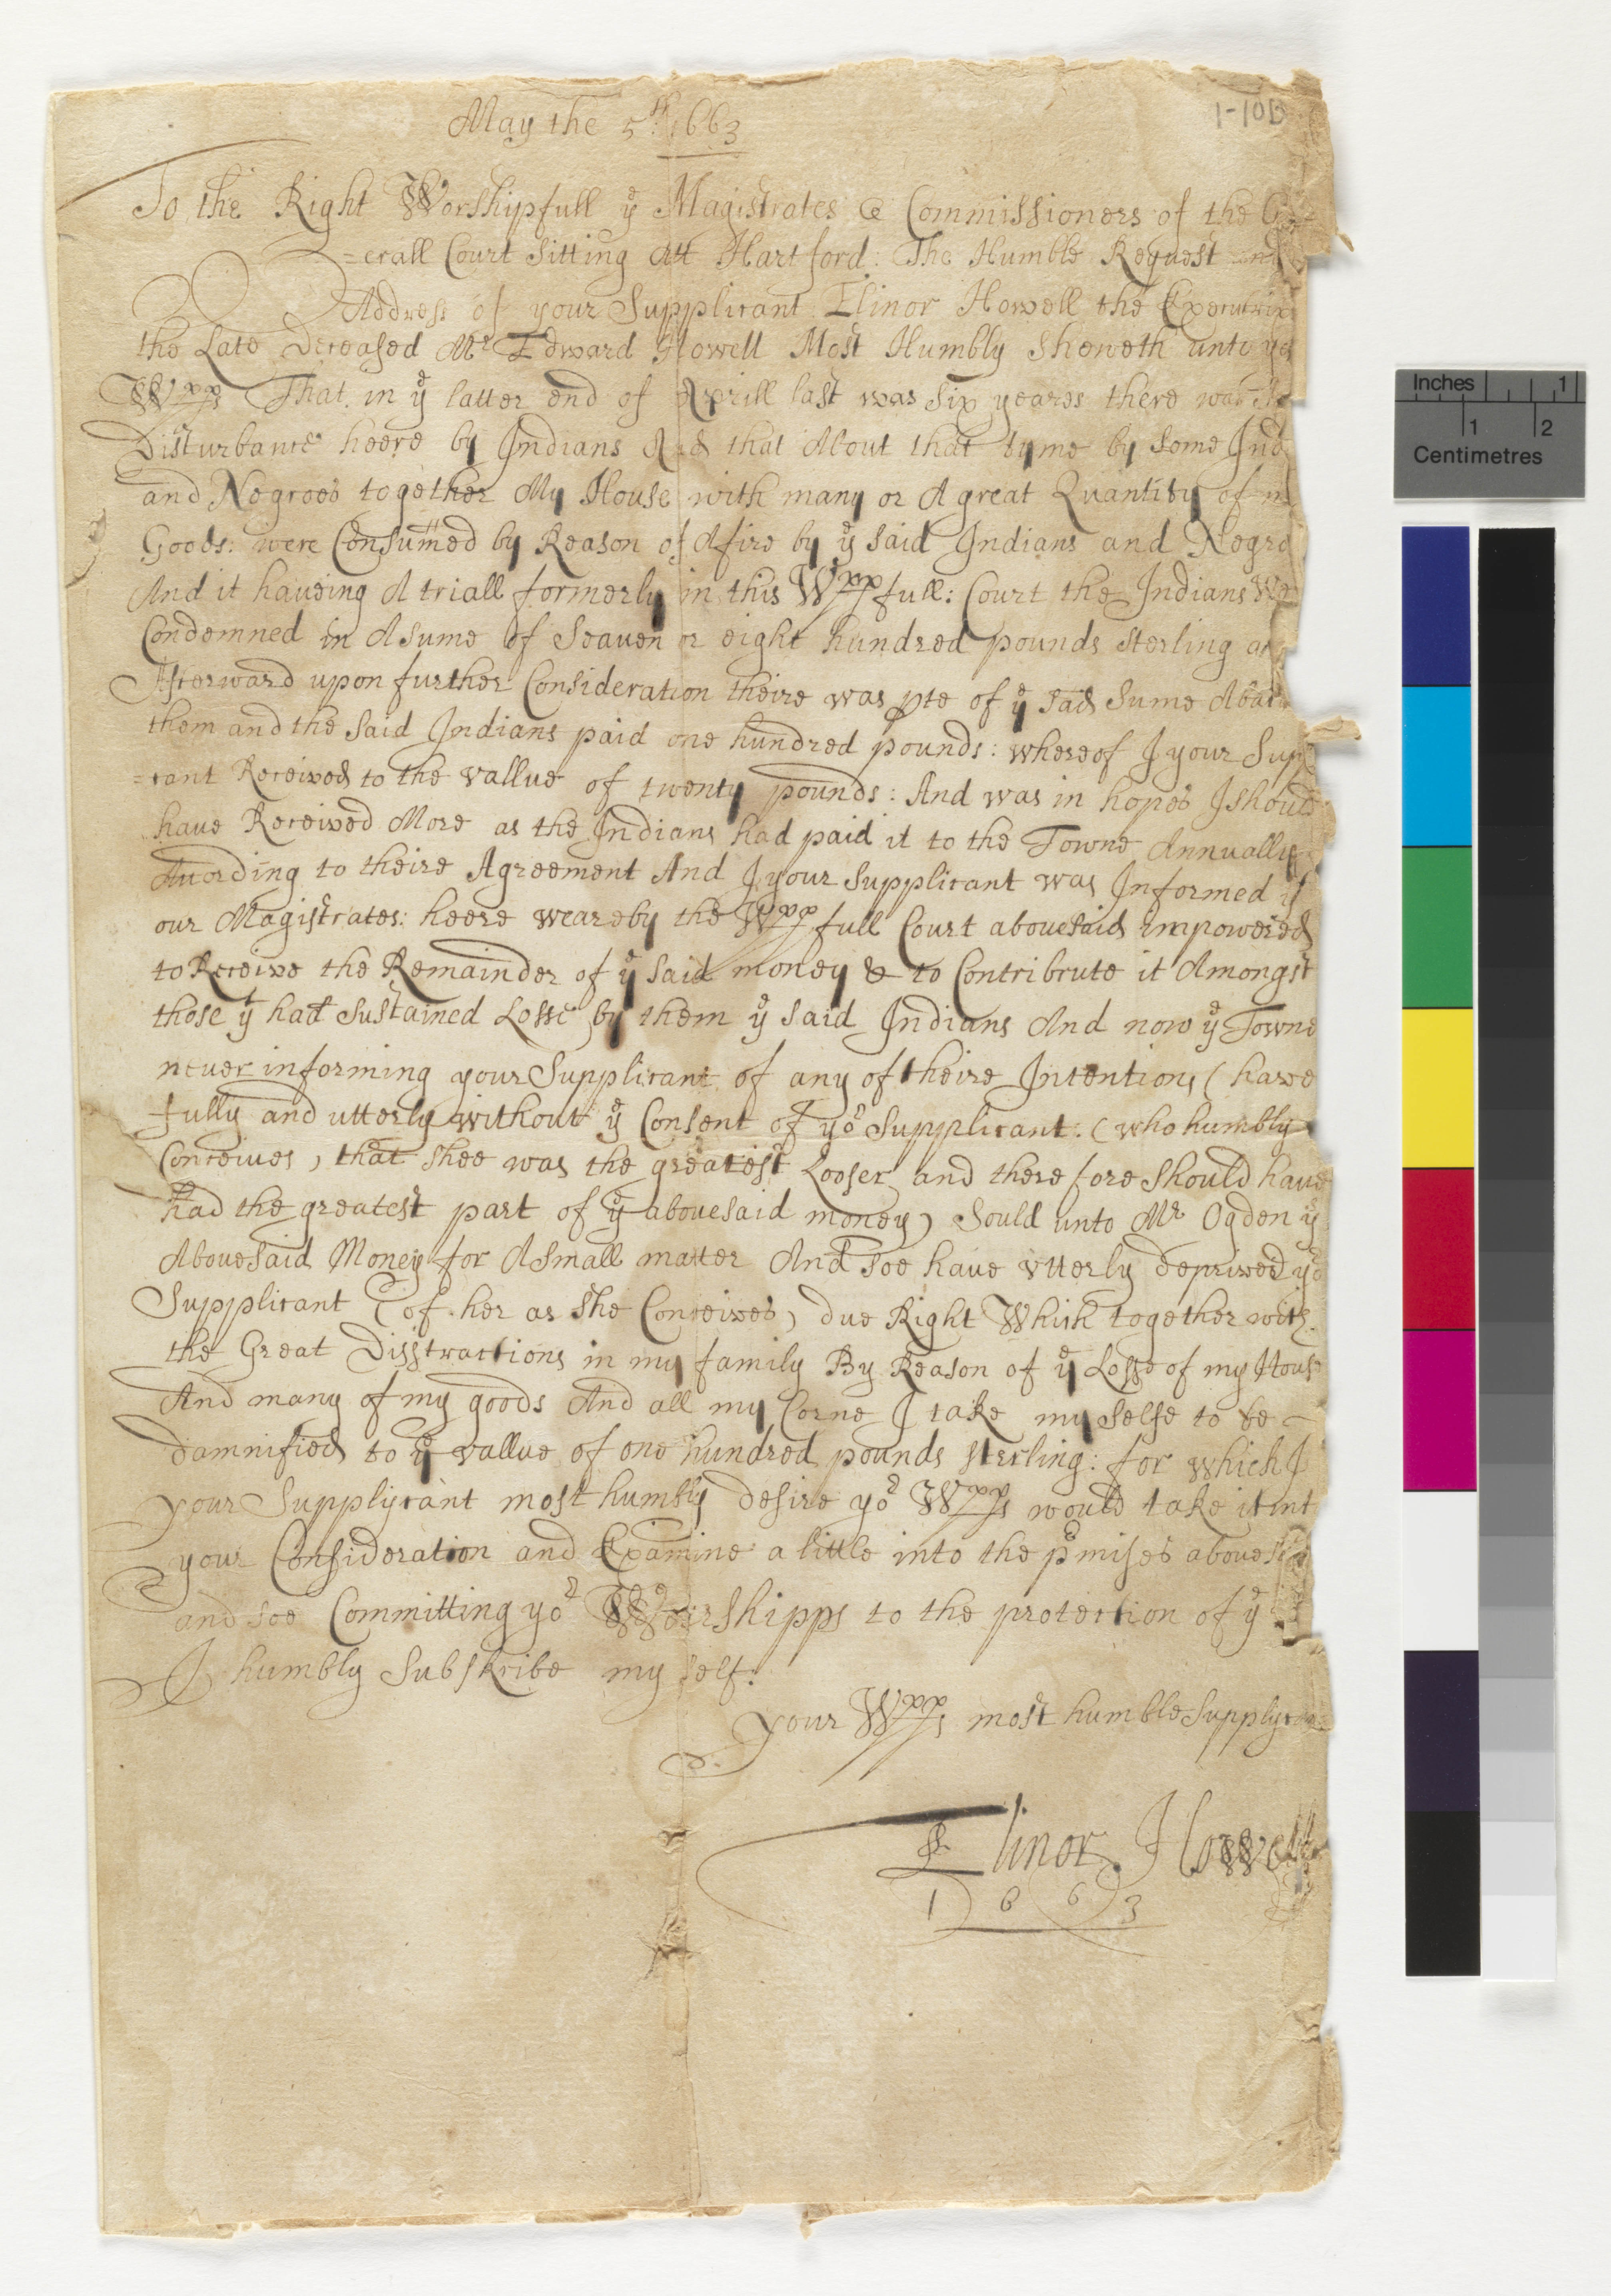 1-10b
May the 5th 1663
To the Right Worshipfull ye Magistrates & Commissioners of the
=erall Court sitting Att Hartford: The Humble Request and
Address of your Supplicant Elinor Howell the Executrix
the Late Deceased Mr Edward Howell Most Humbly sheweth unto
Wpps That in ye latter end of Aprill last was six yeares there was
Disturbance heere by Indians And that About that tyme by some Ind
and Negroes together My House with many or A great Quantity of m
Goods: were Consumed by Reason of A fire by ye said Indians and Negro
And it haueing A triall formerly in this Wppfull: Court the Indians we
Condemned in A sume of Seauen or eight hundred pounds sterling
Afterward upon further Consideration theire was pte of ye sad sume Abat
them and the said Indians paid one hundred pounds: whereof I your Supp
=cant Received to the vallue of twenty pounds: And was in hopes I should
haue Received More as the Indians had paid it to the Towne Annually
Acording to theire Agreement And I your Supplicant was Informed yt
our Magistrates: heere weare by the Wppfull Court abouesaid impowered
to Receive the Remainder of ye said money & to Contribute it Amongst
those yt had sustained Losse by them ye said Indians And now ye Towne
neuer informing your Supplicant of any of theire Intentions (have
fully and utterly without ye Consent of yor Supplicant: (who humbly
Conceiues, that shee was the greatest Looser and therefore should haue
had the greatest part of ye abouesaid money) Sould unto Mr Ogden ye
Abouesaid Money for A small matter And soe haue vtterly deprived yor
Supplicant (of her as She Conceives) due Right Which together with
the Great Disstractions in my family By Reason of ye Losse of my Hous
And many of my goods And all my Corne I take my selfe to be
damnified to ye vallue of one hundred pounds sterling: for which I
your Supplycant most humbly desire yor Wpps would take it int
your Consideration and Examine a little into the pmises aboues
and soe Committing yor Woirshipps to the protection of ye
I humbly Subskribe my self:
your Wpps most humble Supplyca
Elinor Howell
1663
Inches 1
1 2
Centimetres